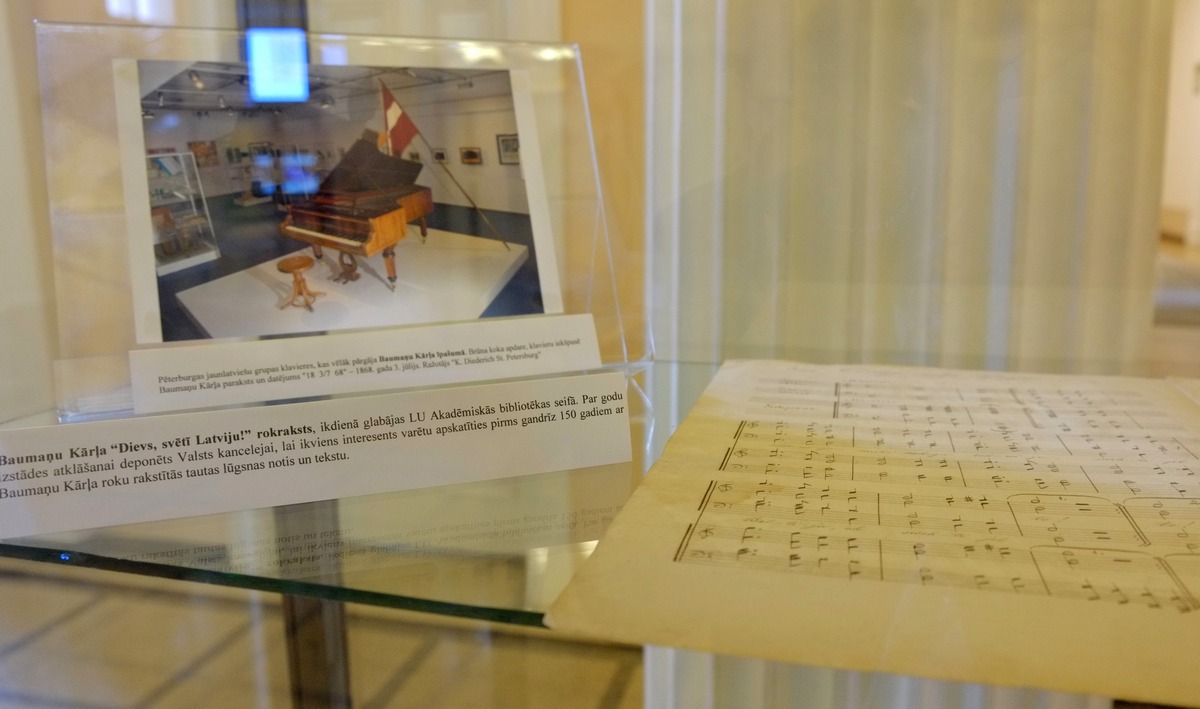 Pēterburgas jaunlatviešu grupas klavieres, kas vēlāk pārgāja Baumaņu Kārļa īpašumā. Brūna koka apdare, klavieru iekšpusē
Baumaņu Kārļa paraksts un datējums "18 3/7 68" – 1868. gada 3. jūlijs. Ražotājs "K. Diederich St. Petersburg"
Baumaņu Kārļa “Dievs, svētī Latviju!” rokraksts, ikdienā glabājas LU Akadēmiskās bibliotēkas seifā. Par godu
izstādes atklāšanai deponēts Valsts kancelejai, lai ikviens interesents varētu apskatīties pirms gandrīz 150 gadiem ar
Baumaņu Kārļa roku rakstītās tautas lūgsnas notis un tekstu.